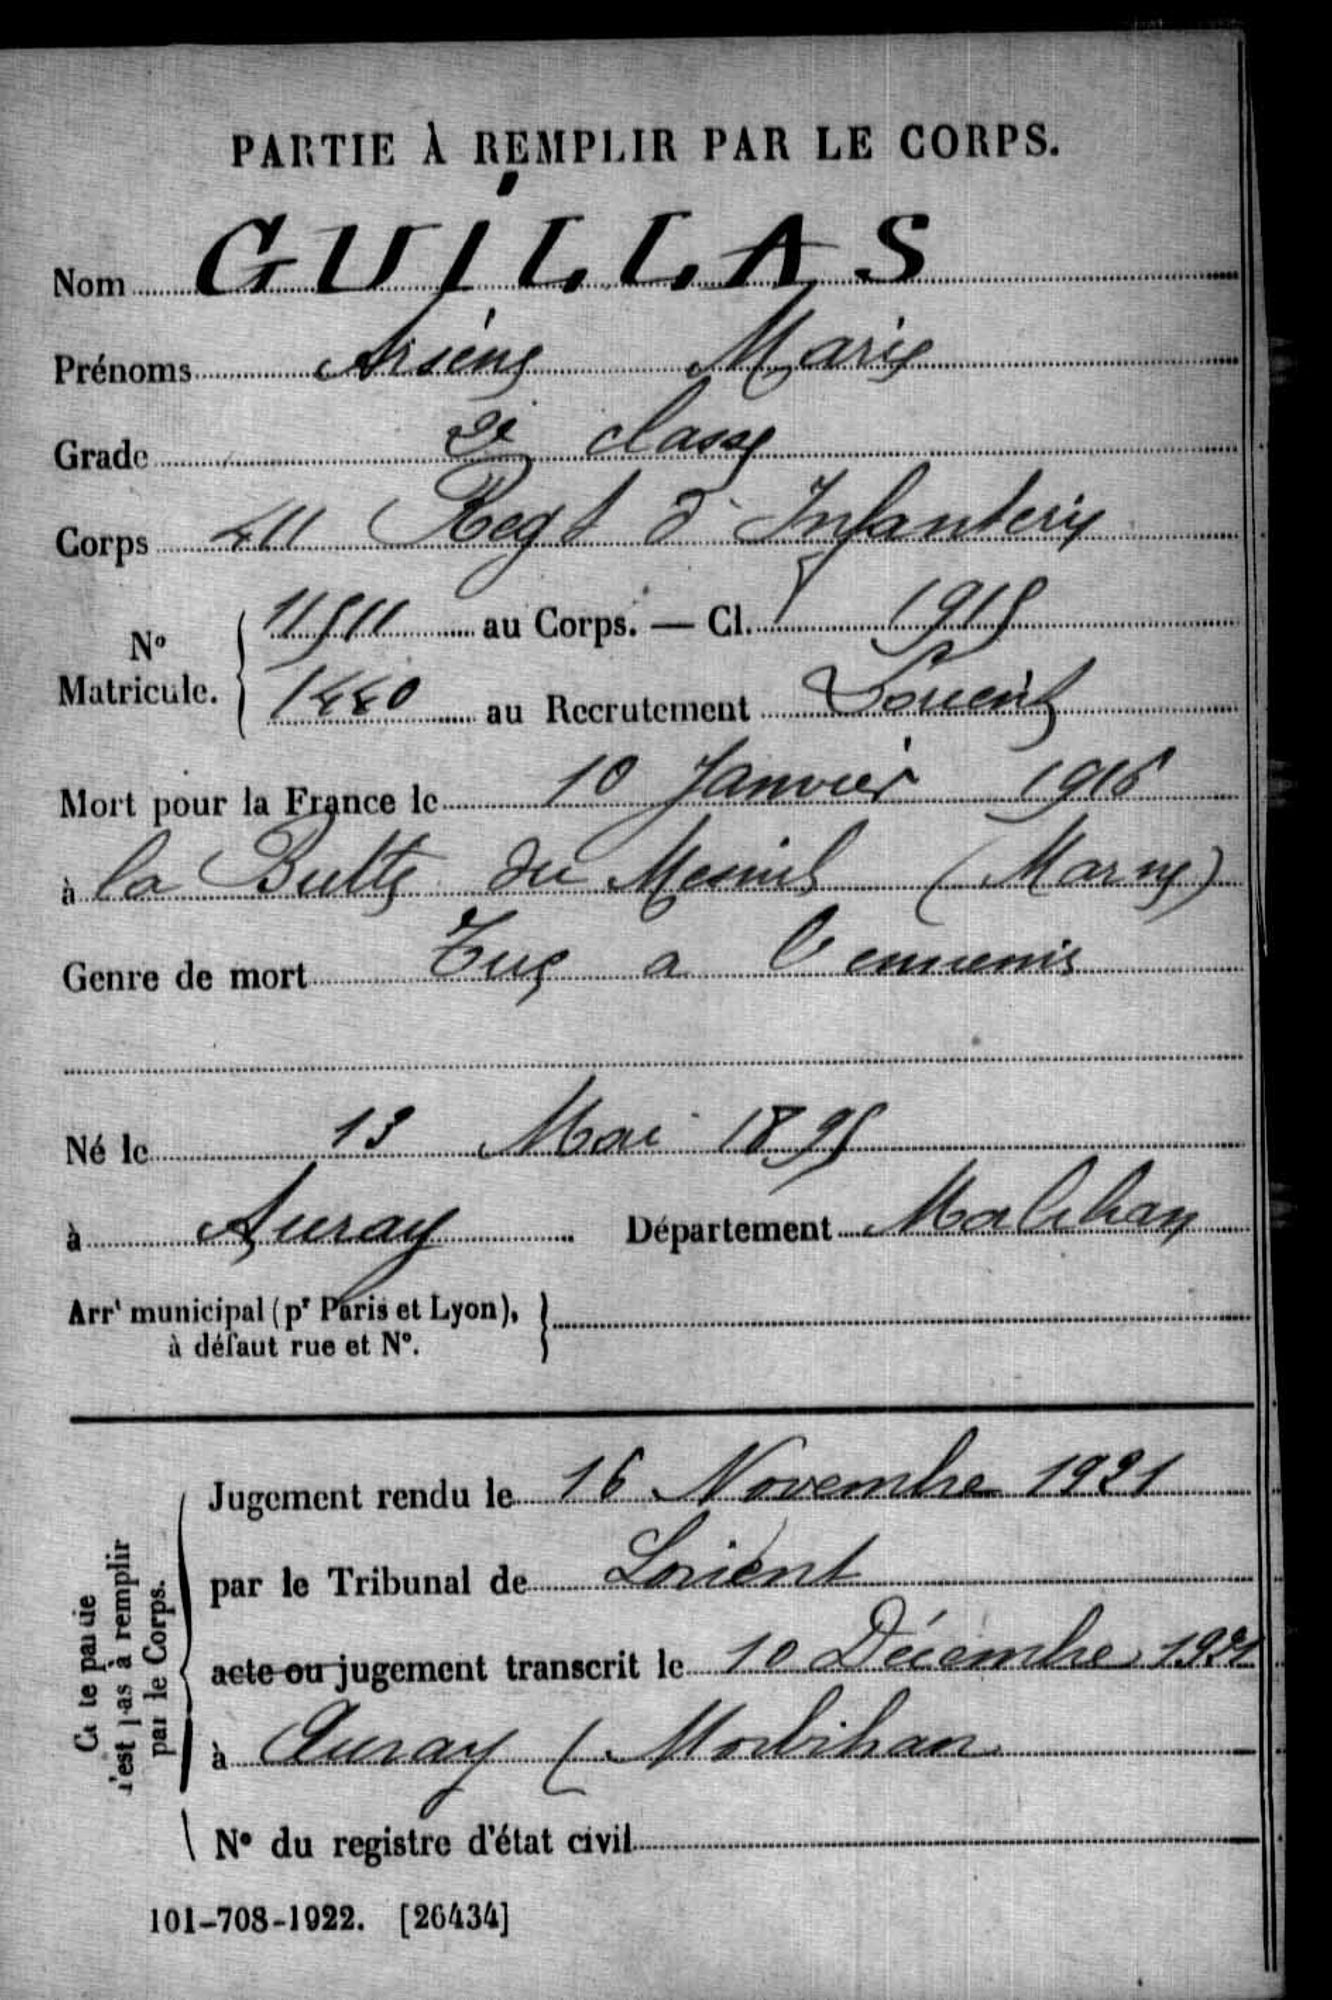 PARTIE À REMPLIR PAR LE CORPS.
Nom GUILLAS
Prénoms Arsène Marie
Grade 2e classe
Corps 411 Regt d'Infanterie
No Matricule. 11511 au Corps. — Cl. 1915
1440 au Recrutement Lorient
Mort pour la France le 10 Janvier 1916
à la Butte du Mesnil (Marne)
Genre de mort Tué a l'ennemis
Né le 13 Mai 1895
à Auray Département Morbihan
Arrt municipal (pr Paris et Lyon),
à défaut rue et No.
Cette partie
n'est pas à remplir
par le Corps.
Jugement rendu le 16 Novembre 1921
par le Tribunal de Lorient
acte ou jugement transcrit le 10 Décembre 1921
à Auray (Morbihan
No du registre d'état civil
101-708-1922. [26434]